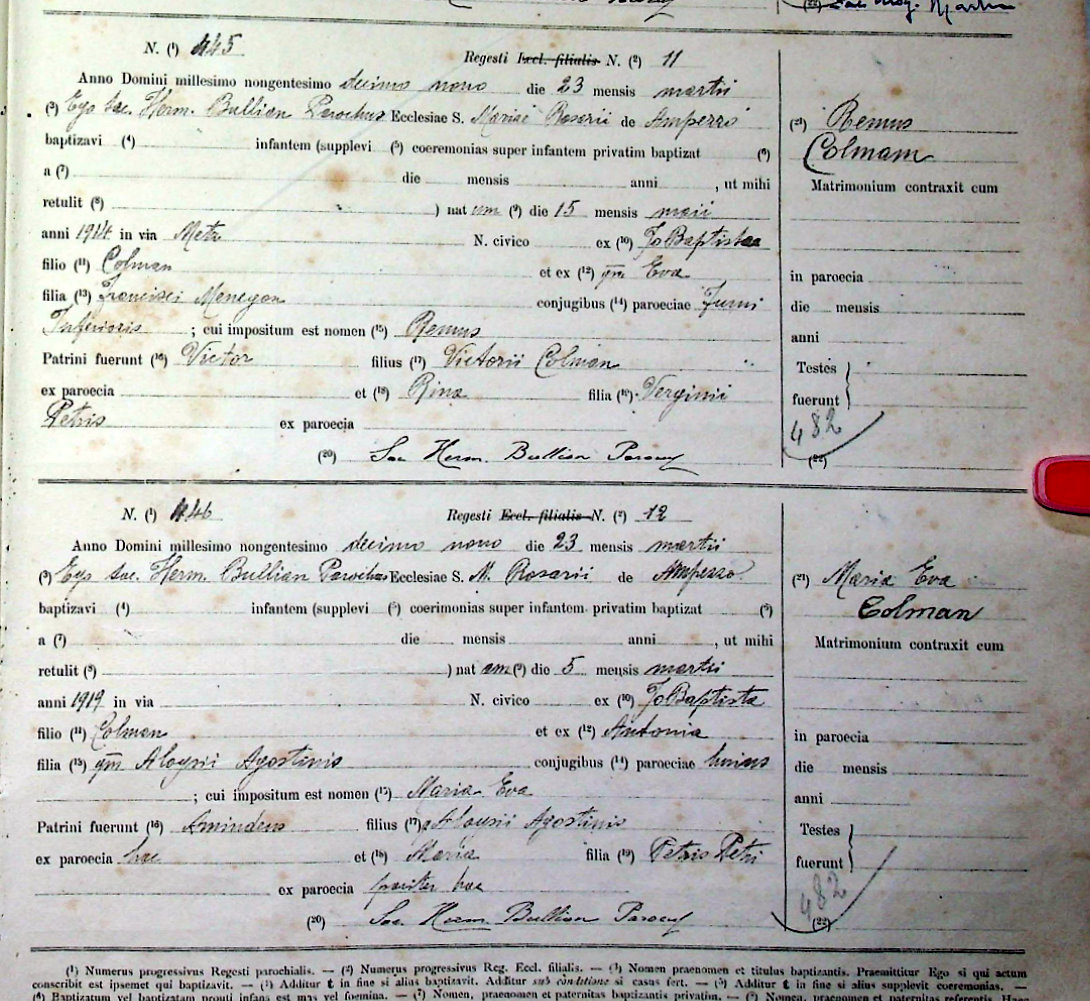 N. (¹) 445
Regesti Eccl. filialis N. (²) 11
Anno Domini millesimo nongentesimo decimo nono die 23 mensis martii
(³) Ego Sac. Herm. Bullian Parochus Ecclesiae S. Mariae Rosarii de Ampezzo
baptizavi (⁴) infantem (supplevi (⁵) coeremonias super infantem privatim baptizat (⁶)
a (⁷) die mensis anni , ut mihi
retulit (⁸) ) nat um (⁹) die 15 mensis maii
anni 1914 in via Metz N. civico ex (¹⁰) Jo Baptista
filio (¹¹) Colman et ex (¹²) qm Eva
filia (¹³) Francisci Menegon conjugibus (¹⁴) paroeciae Furni
Inferioris ; cui impositum est nomen (¹⁵) Remus
Patrini fuerunt (¹⁶) Victor filius (¹⁷) Victorii Colman
ex paroecia et (¹⁸) Rina filia (¹⁹) Verginii
Petris ex paroecia
(²⁰) Sac. Herm. Bullian Paroc
(²¹) Remus
Colman
Matrimonium contraxit cum
in paroecia
die mensis
anni
Testes
fuerunt
482
(²²)
N. (¹) 446
Regesti Eccl. filialis N. (²) 12
Anno Domini millesimo nongentesimo decimo nono die 23 mensis martii
(³) Ego Sac. Herm. Bullian Parochus Ecclesiae S. M. Rosarii de Ampezzo
baptizavi (⁴) infantem (supplevi (⁵) coerimonias super infantem privatim baptizat (⁶)
a (⁷) die mensis anni , ut mihi
retulit (⁸) ) nat am (⁹) die 5 mensis martii
anni 1919 in via N. civico ex (¹⁰) Jo Baptista
filio (¹¹) Colman et ex (¹²) Antonia
filia (¹³) qm Aloysii Agostinis conjugibus (¹⁴) paroeciae huius
; cui impositum est nomen (¹⁵) Maria Eva
Patrini fuerunt (¹⁶) filius (¹⁷) Aloysii Agostinis
ex paroecia hac et (¹⁸) Maria filia (¹⁹) Petris Petri
ex paroecia pariter hac
(²⁰) Sac. Herm. Bullian Paroc
(²¹) Maria Eva
Colman
Matrimonium contraxit cum
in paroecia
die mensis
anni
Testes
fuerunt
482
(²²)
(¹) Numerus progressivus Regesti parochialis. — (²) Numerus progressivus Reg. Eccl. filialis. — (³) Nomen praenomen et titulus baptizantis. Praemittitur Ego si qui actum
conscribit est ipsemet qui baptizavit. — (⁴) Additur t in fine si alius baptizavit. Additur sub conditione si casus fert. — (⁵) Additur t in fine si alius supplevit coeremonias. —
(⁶) Baptizatum vel baptizatam prouti infans est mas vel foemina. — (⁷) Nomen, praenomen et paternitas baptizantis privatim. — (⁸) Nomen, praenomen et paternitas referentis.